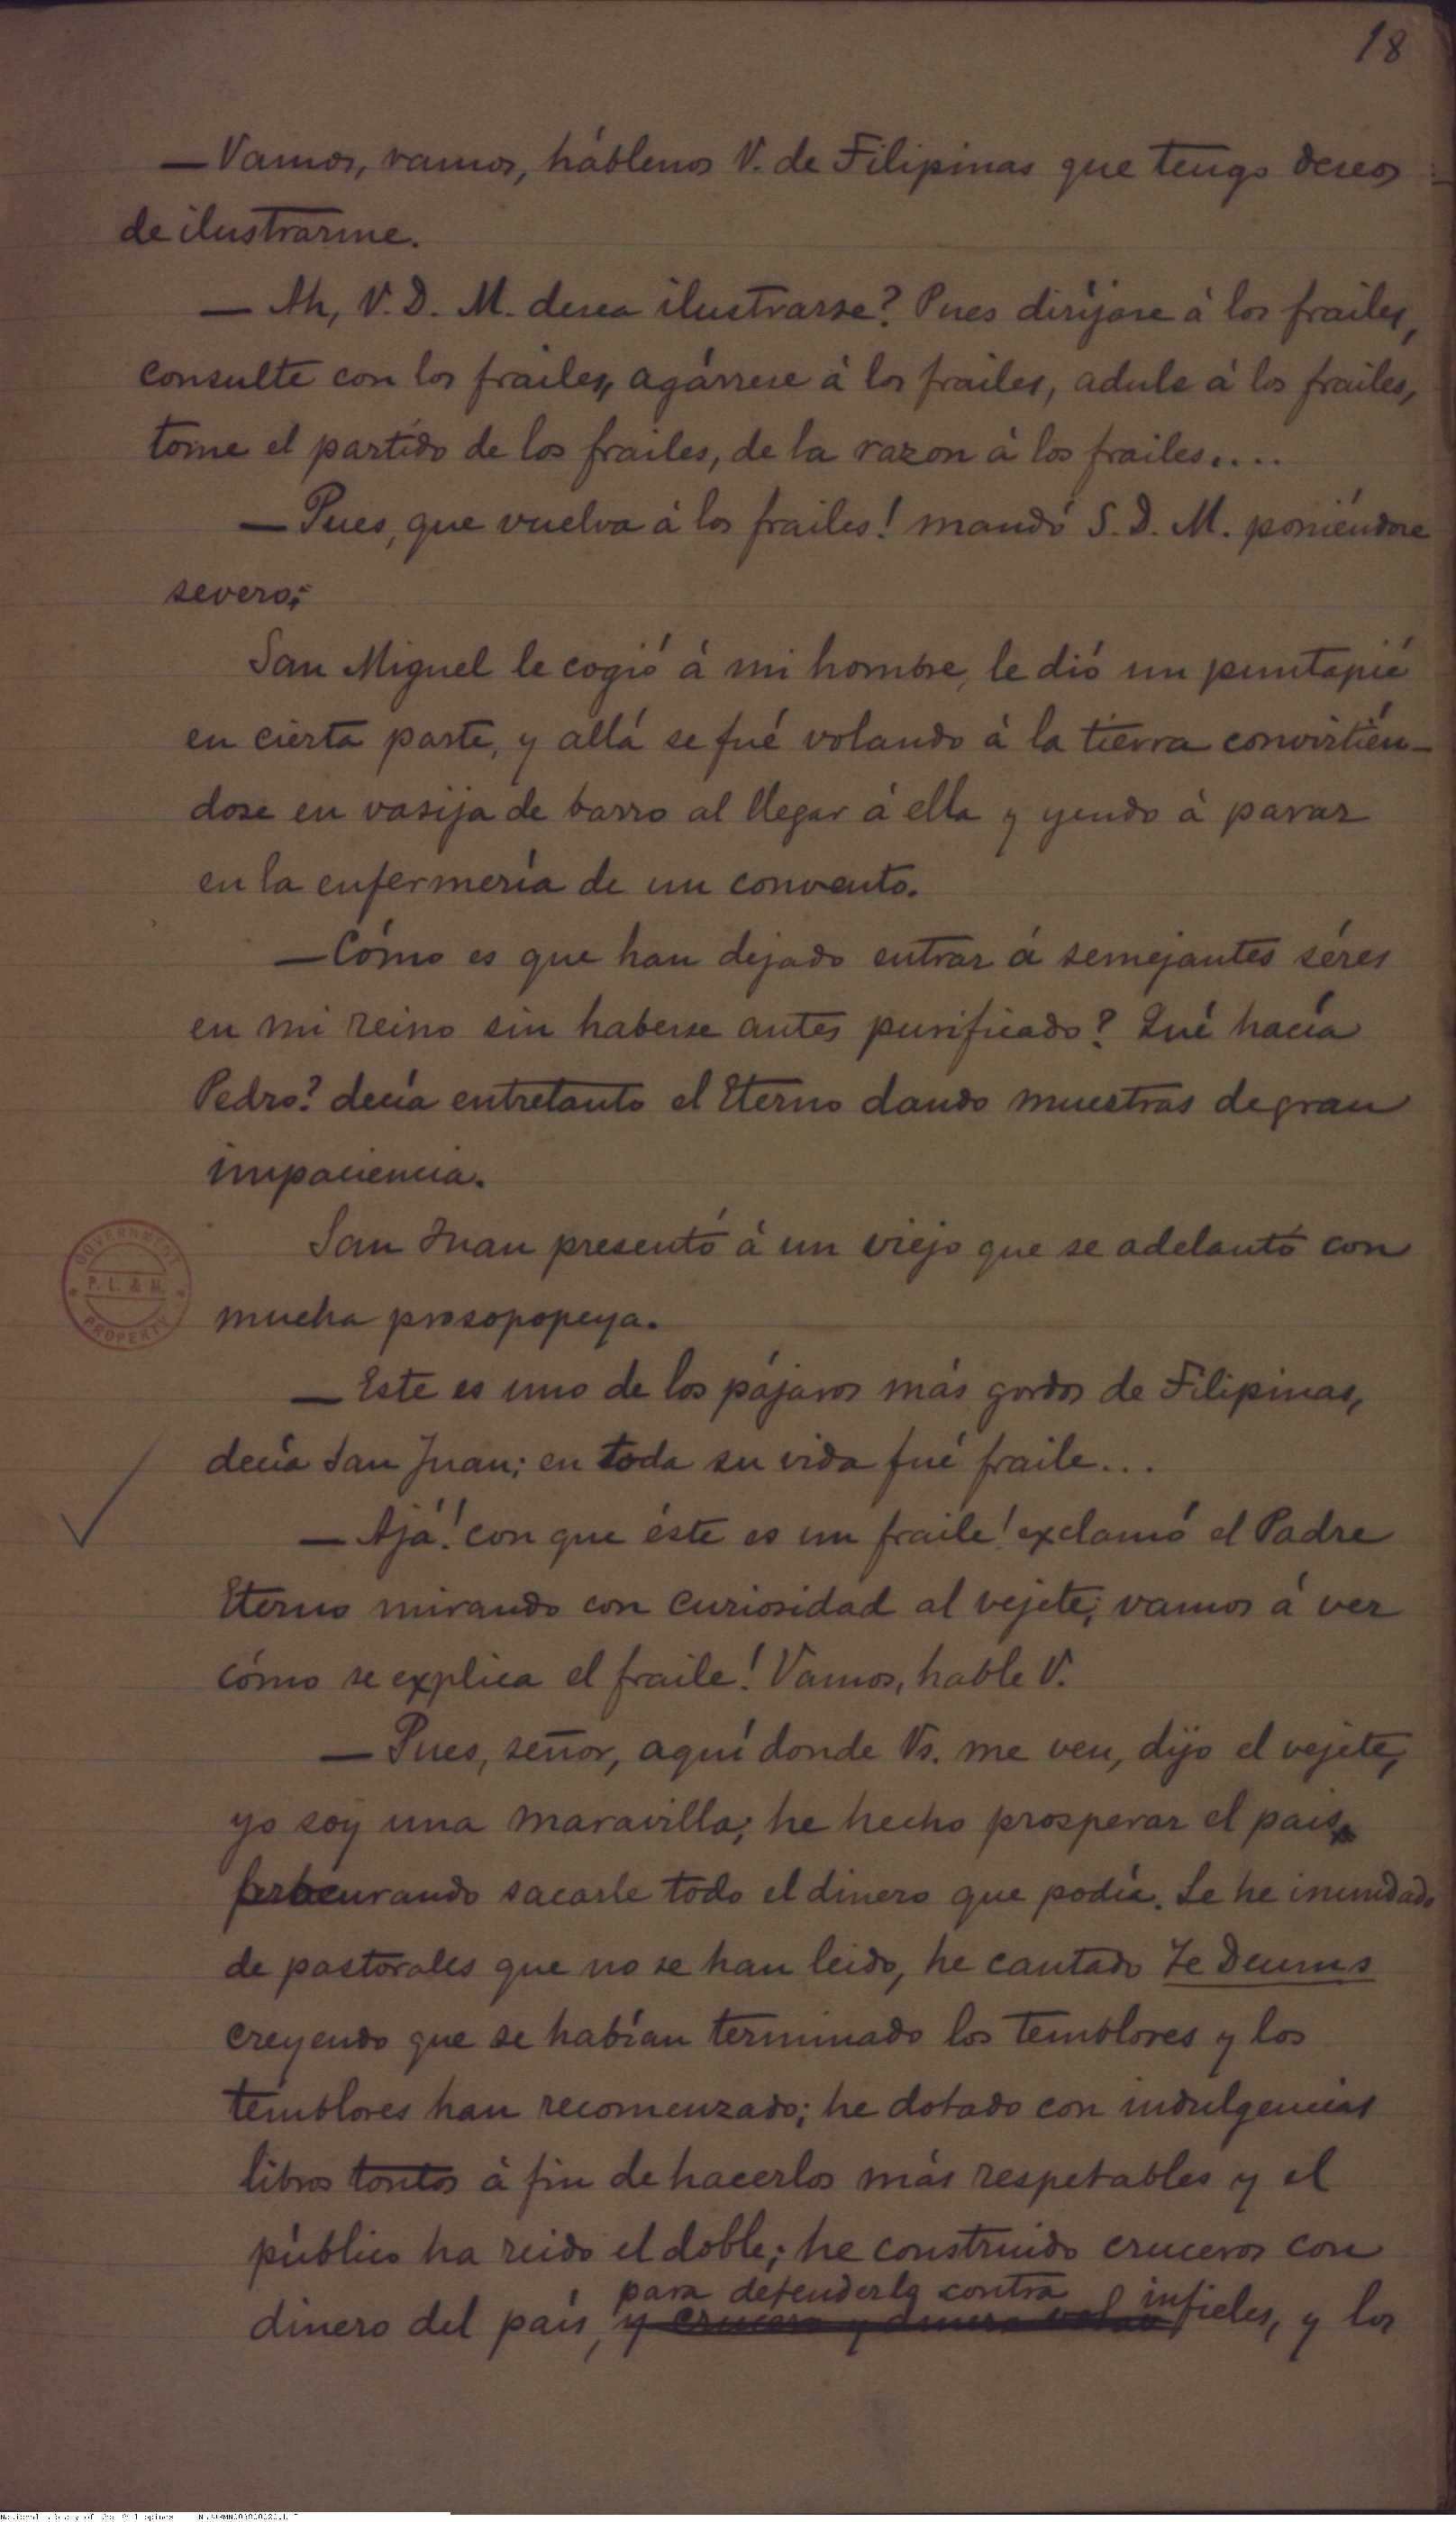 18
— Vamos, vamos, háblenos V. de Filipinas que tengo deseos
de ilustrarme.
— Ah, V. D. M. desea ilustrarse? Pues diríjase á los frailes,
consulte con los frailes, agárrese á los frailes, adule á los frailes,
tome el partido de los frailes, de la razon á los frailes....
— Pues, que vuelva á los frailes! mandó S. D. M. poniéndose
severo;
San Miguel le cogió á mi hombre, le dió un puntapié
en cierta parte, y allá se fué volando á la tierra convirtién-
dose en vasija de barro al llegar á ella y yendo á parar
en la enfermería de un convento.
— Cómo es que han dejado entrar á semejantes séres
en mi reino sin haberse antes purificado? Qué hacía
Pedro? decía entretanto el Eterno dando muestras de gran
impaciencia.
San Juan presentó á un viejo que se adelantó con
mucha prosopopeya.
GOVERNMENT
P. L. & M.
PROPERTY
— Este es uno de los pájaros más gordos de Filipinas,
decía San Juan; en toda su vida fué fraile...
— Ajá! con que éste es un fraile! exclamó el Padre
Eterno mirando con curiosidad al vejete; vamos á ver
cómo se explica el fraile! Vamos, hable V.
— Pues, señor, aquí donde Vs. me ven, dijo el vejete,
yo soy una maravilla; he hecho prosperar el pais
procurando sacarle todo el dinero que podía. Le he inundado
de pastorales que no se han leido, he cantado Te Deums
creyendo que se habían terminado los temblores y los
temblores han recomenzado; he dotado con indulgencias
libros tontos á fin de hacerlos más respetables y el
público ha reido el doble; he construido cruceros con
para defenderla contra
dinero del país, infieles, y los
National Library of the Philippines